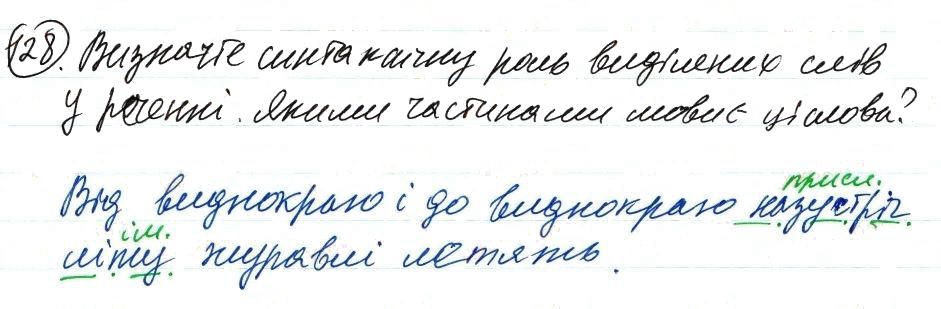 128. Визначте синтаксичну роль виділених слів
у реченні. Якими частинами мови є ці слова?
присл.
Від виднокраю і до виднокраю назустріч
ім.
літу журавлі летять.